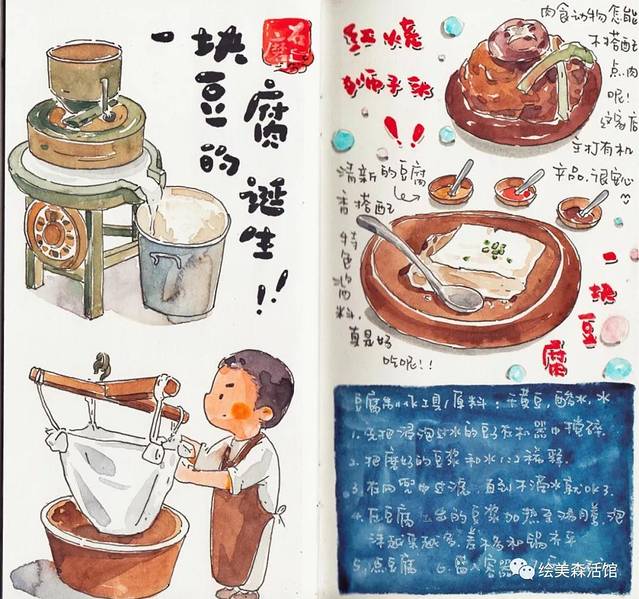 一块豆腐的诞生!!
石磨
红烧
狮子头
!!
肉食动物怎能
不搭配
点肉
呢!
这家店
主打有机
产品.很安心
清新的豆腐
香搭配
特色酱料,
真是好
吃呢!!
一块豆腐
豆腐制作工具/原料:干黄豆,酸水,水
1.先把浸泡过水的豆子在机器中搅碎.
2.把磨好的豆浆和水1:2稀释.
3.在网兜中过滤,直到不滴水就OK了.
4.在豆腐
的豆浆加热至沸腾,泡
沫越来越多,差不多和锅齐平
5.点豆腐 6.留入容器
绘美森活馆